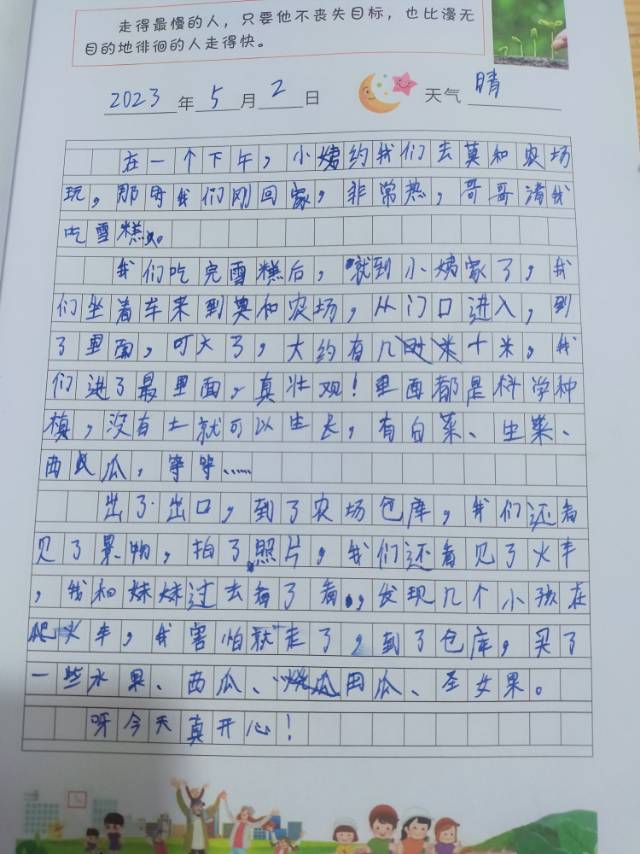 走得最慢的人，只要他不丧失目标，也比漫无
目的地徘徊的人走得快。
2023年5月2日 天气 晴
在一个下午，小姨约我们去莫和农场
玩，那时我们刚回家，非常热，哥哥请我
吃雪糕。
我们吃完雪糕后，就到小姨家了，我
们坐着车来到莫和农场，从门口进入，到
了里面，可大了，大约有几十米，我
们进了最里面，真壮观！里面都是科学种
植，没有土就可以生长，有白菜、生菜、
西瓜，等等……
出了出口，到了农场仓库，我们还看
见了果物，拍了照片，我们还看见了火车
，我和妹妹过去看了看，发现几个小孩在
爬火车，我害怕就走了，到了仓库，买了
一些水果、西瓜、甜瓜、圣女果。
呀今天真开心！